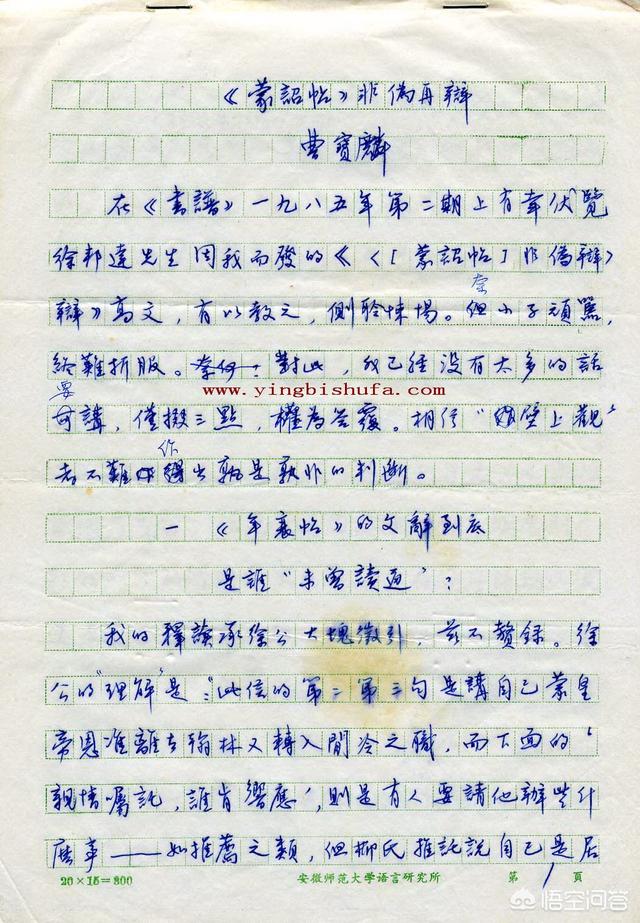 《蒙詔帖》非偽再辯
曹寶麟
在《書譜》一九八五年第二期上有幸伏覽
徐邦達先生因我而發的《〈[蒙詔帖]非偽辯〉
辯》高文,有以教之,側聆悚惕。但小子頑駑,
終難折服。對此,我已經沒有太多的話
要講,僅掇三點,權為答覆。相信“壁上觀”
者不難作出孰是孰非的判斷。
一 《年衰帖》的文辭到底
是誰“未曾讀通”?
我的釋讀承徐公大塊徵引,茲不贅錄。徐
公的“理解”是:“此信的第二第三句是講自己蒙皇
帝恩准離去翰林又轉入閒冷之職,而下面的‘
親情囑託,誰肯響應’,則是有人要請他辦些什
麼事——如推薦之類,但柳氏推託說自己是居
20×15=300 安徽师范大学语言研究所 第1頁
www.yingbishufa.com
悟空问答